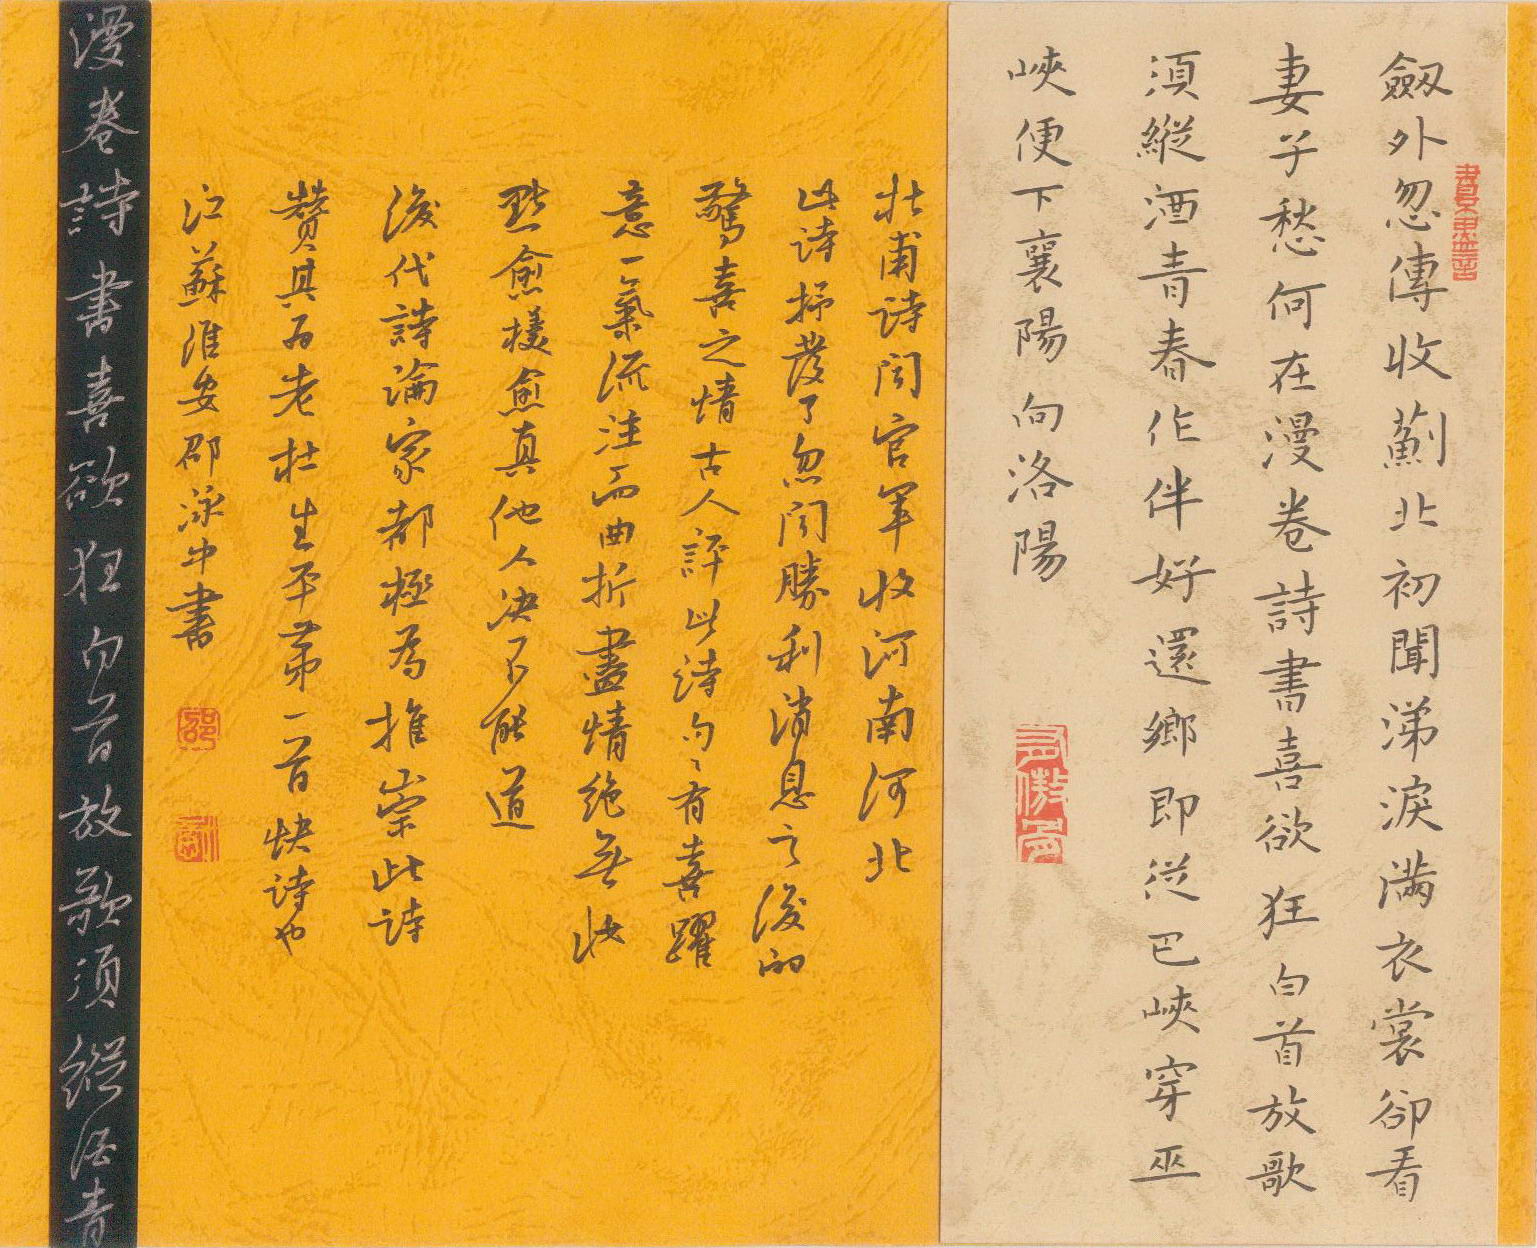 劔外忽傳收薊北初聞涕淚滿衣裳卻看
妻子愁何在漫卷詩書喜欲狂白首放歌
須縱酒青春作伴好還鄉即從巴峽穿巫
峽便下襄陽向洛陽
杜甫诗闻官军收河南河北
此诗抒发了忽闻勝利消息之後的
驚喜之情古人評此诗句々有喜躍
意一氣流注而曲折盡情绝无妆
點愈樸愈真他人决不能道
後代詩論家都極為推崇此诗
赞其为老杜生平第一首快诗也
江蘇淮安邵泳中書
漫卷詩書喜欲狂白首放歌須縱酒青